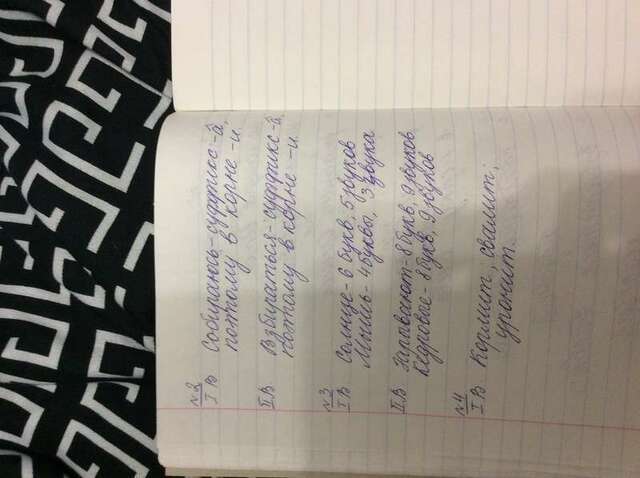 №2
I В Собираюсь - суффикс -а,
поэтому в корне -и.
II В Взбираться - суффикс -а,
поэтому в корне -и.
№3
I В Солнце - 6 букв, 5 звуков
Мышь - 4 буквы, 3 звука
II В Заплывают - 8 букв, 9 звуков
Кедровые - 8 букв, 9 звуков
№4
I В Кормит, свалит,
уронит.